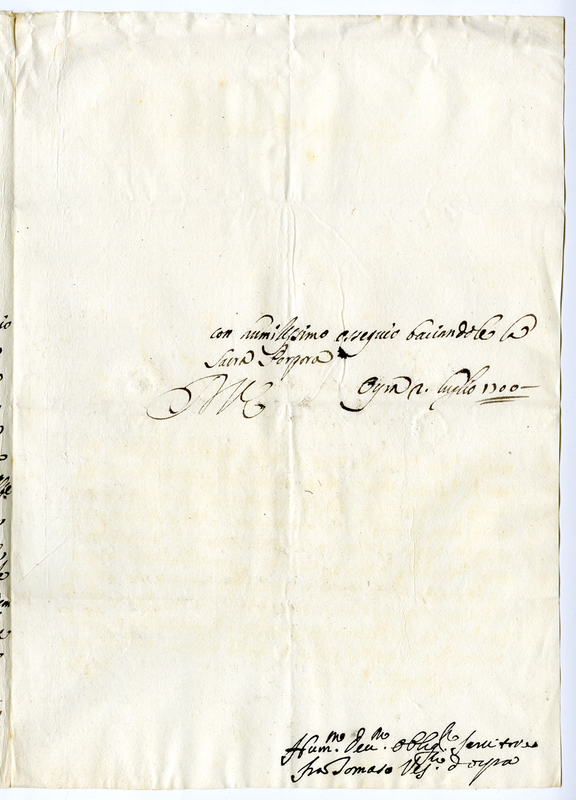 con humilissimo osseguio baciandole la
Sacra Porpora
Oyra 2. luglio 1700
Hum.mo Deu.mo oblig.mo seruitore
fra Tomaso Vesc.uo d'oyra